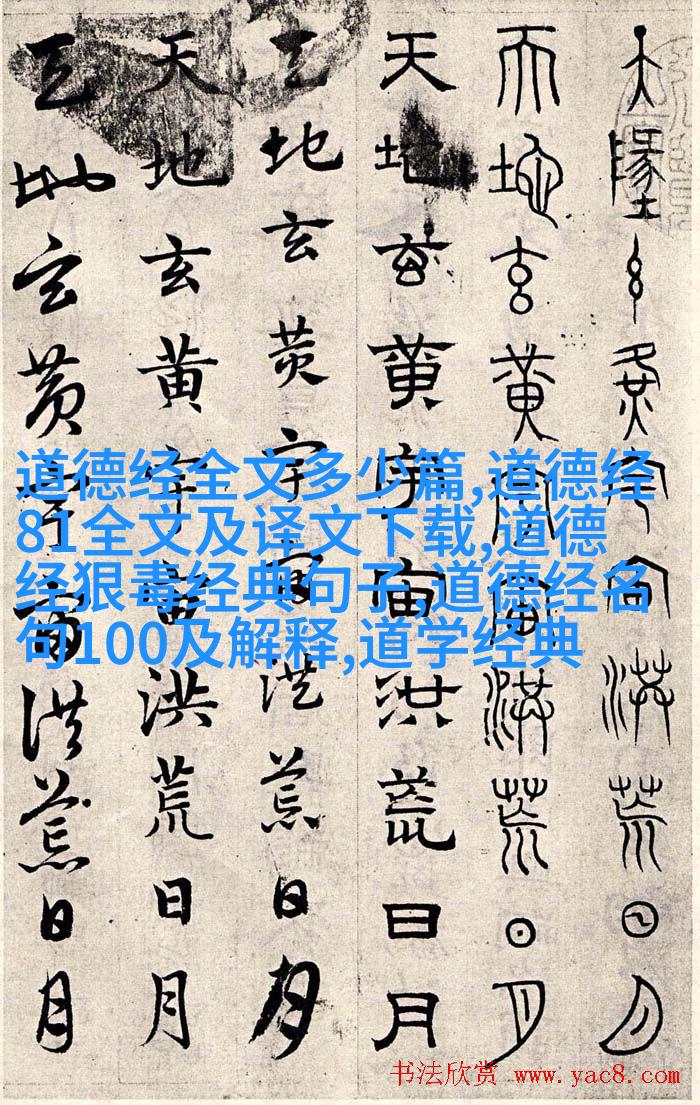 天地玄黄宇宙洪荒日月
天地玄黄宇宙洪荒日月
天地玄黄宇宙洪荒日月
天地玄黄宇宙洪荒日月
天地玄黄宇宙洪荒日月
天地玄黄宇宙洪荒日月
道德经全文多少篇,道德经
81全文及译文下载,道德
经狠毒经典句子,道德经名
句100及解释,道学经典
书法欣赏 www.yac8.com